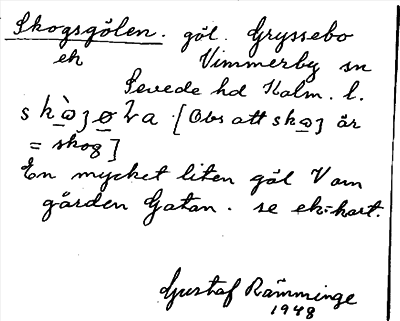 Skogsgölen. göl. Gryssebo
ek Vimmerby sn
Sevede hd Kalm. l.
[Obs att sko̲ʒ är
= skog]
En mycket liten göl V om
gården Gatan. se ek-kart.
Gustaf Rämminge
1948